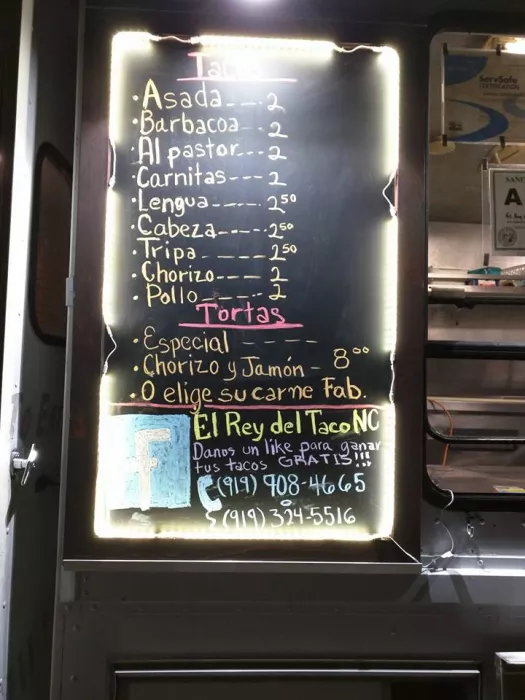 Tacos
· Asada---- 2
· Barbacoa--- 2
· Al pastor--- 2
· Carnitas--- 2
· Lengua---- 2⁵⁰
· Cabeza----- 2⁵⁰
· Tripa ----- 2⁵⁰
· Chorizo---- 2
· Pollo----- 2
Tortas
· Especial ----
· Chorizo y Jamón - 8⁰⁰
· O elige su carne Fab.
f
El Rey del Taco NC
Danos un like para ganar
tus tacos GRATIS!!!
(919) 908-4665
(919) 324-5516
ServSafe
A